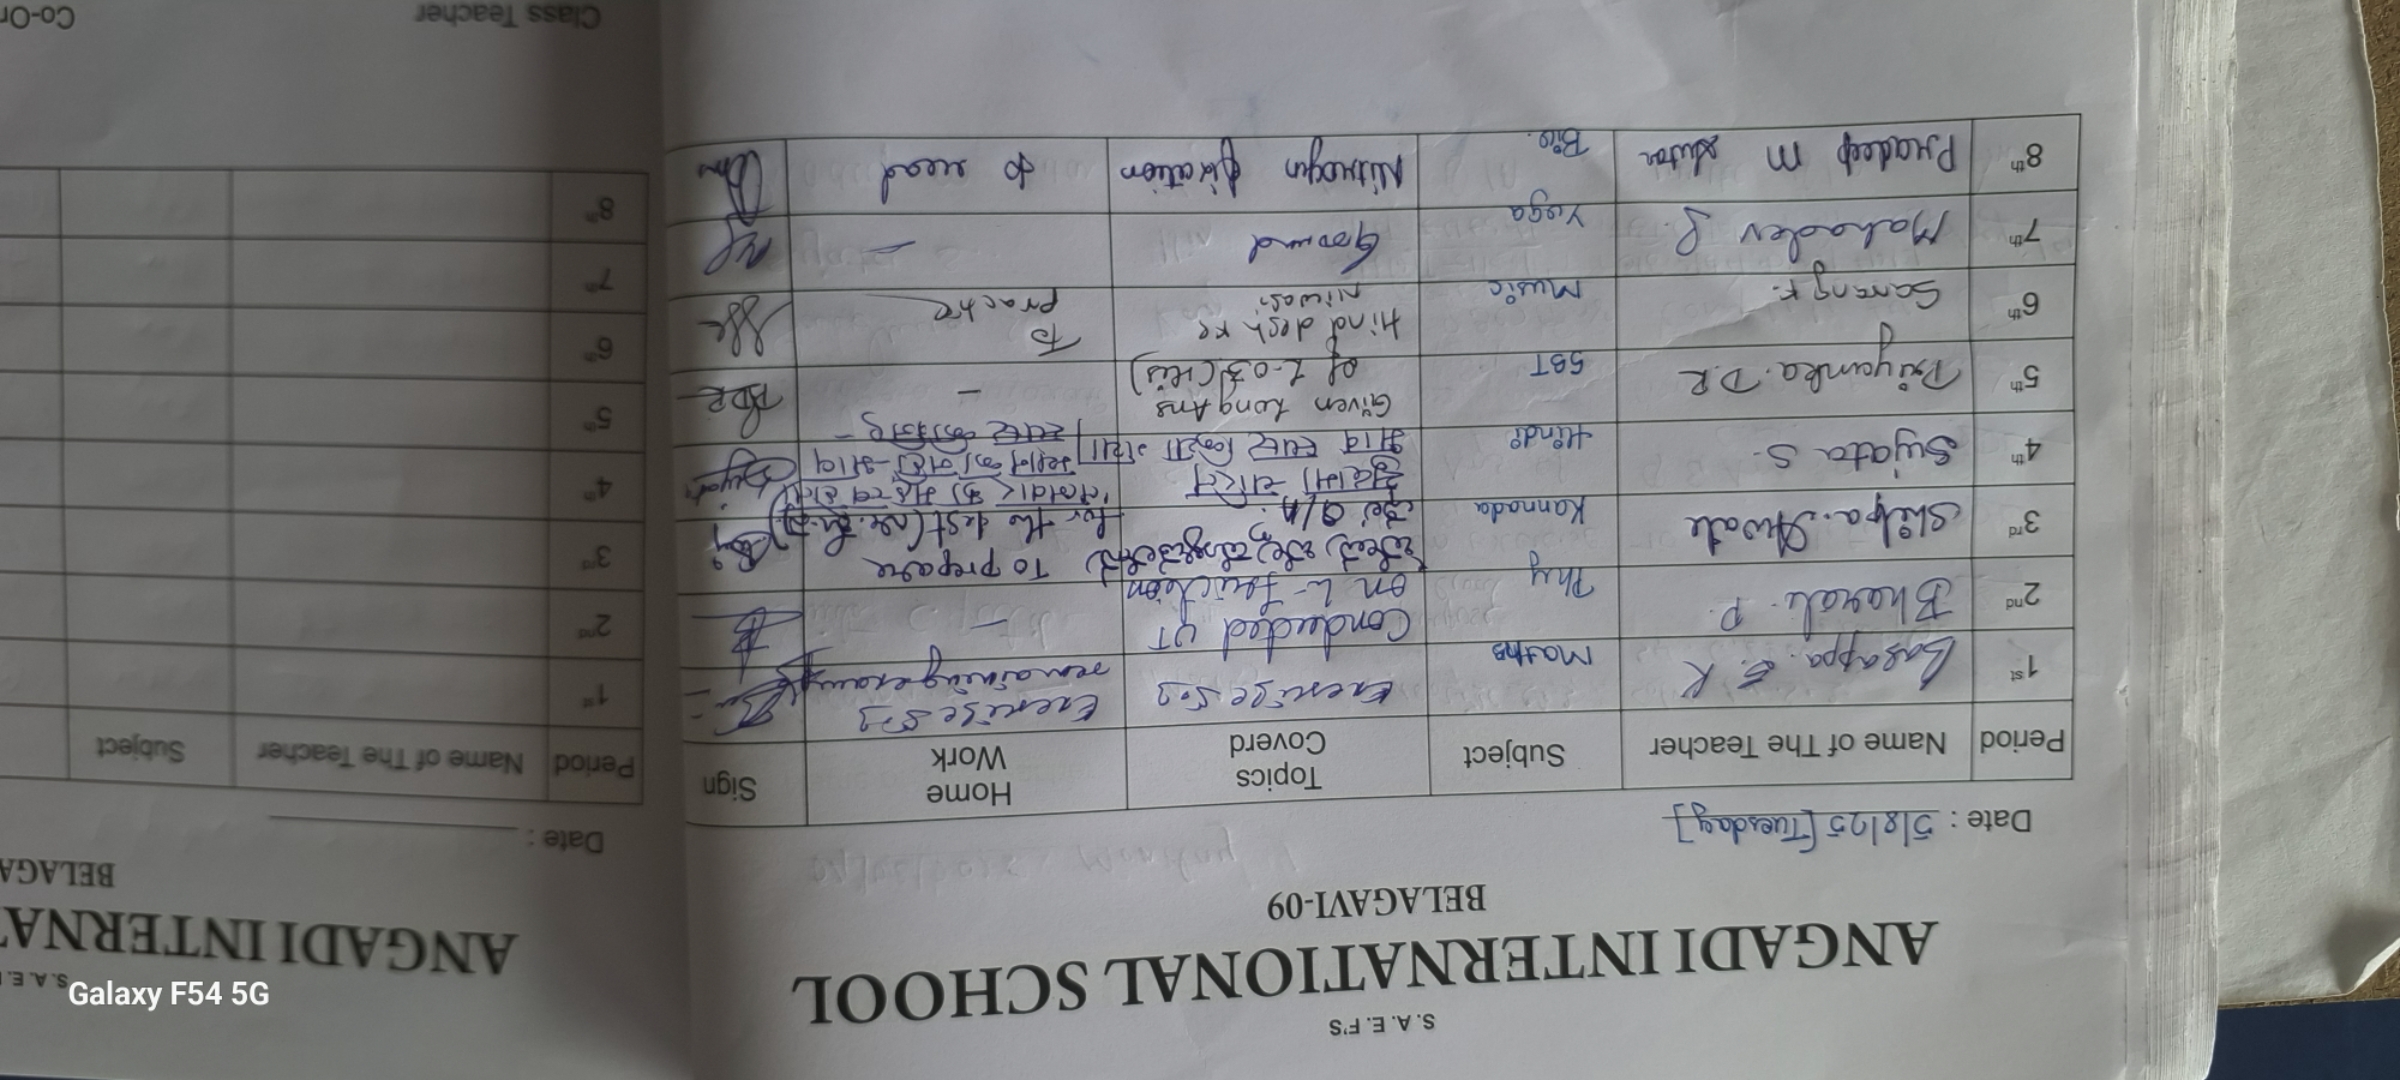 S. A. E. F'S
ANGADI INTERNATIONAL SCHOOL
BELAGAVI-09
Date : 5/8/25 [Tuesday]
Period Name of The Teacher Subject Topics Coverd Home Work Sign
1st Basappa. E. K Maths Exercise 5.3 Exercise 5.3 remaining
2nd Bharati. P. Phy Conducted UT on L- Friction —
3rd Shilpa. Awale Kannada Q/A. To prepare for the test
4th Sujata S. Hindi
5th Priyanka. D.R SST Given Long Ans of L-03 — PDR
6th Sarang K. Music Hind desh ke Niwasi To practice
7th Mahadev P. Yoga Ground —
8th Pradeep M sutar Bio. Nitrogen fixation to read
S. A. E.
ANGADI INTERNA
BELAGA
Date :
Period Name of The Teacher Subject
1st
2nd
3rd
4th
5th
6th
7th
8th
Class Teacher Co-Or
Galaxy F54 5G